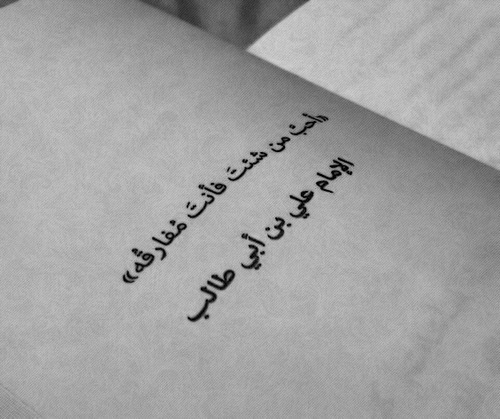 «أحبْ من شئتَ فأنتَ مُفارقُه»
الإمام علي بن أبي طالب